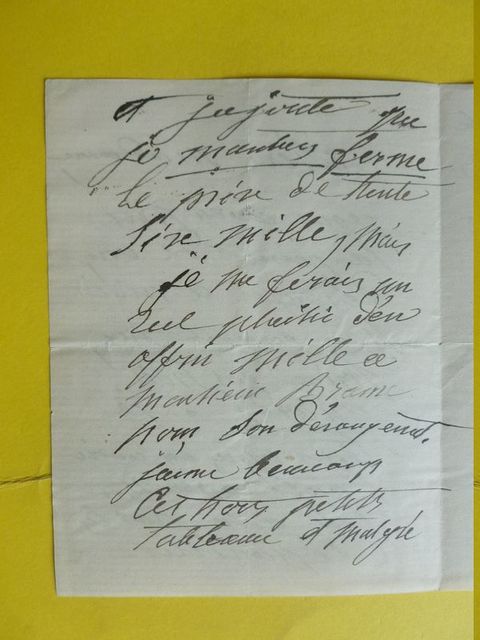 et j'ajoute que
je maintiens ferme
le prix de trente
six mille, mais
je me ferais un
réel plaisir d'en
offrir mille a
monsieur Brame
pour son dérangement.
j'aime beaucoup
Ces trois petits
tableaux et malgré